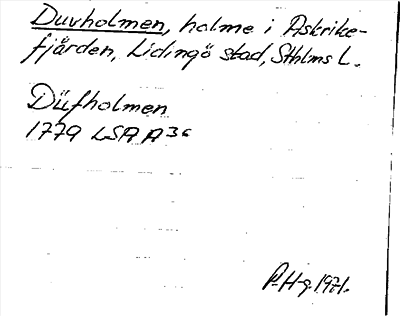 Duvholmen, holme i Askrike-
fjärden, Lidingö stad, Sthlms L.
Düfholmen
1779 LSA A36
P.H-g. 1971.